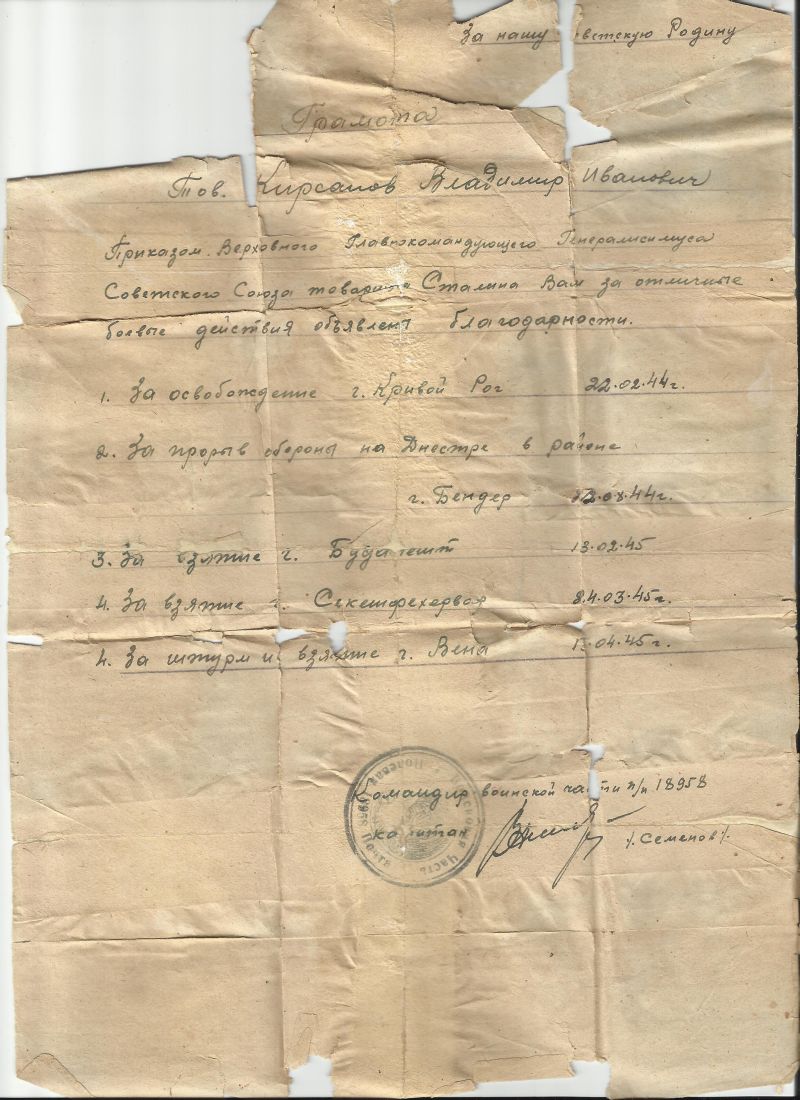 За нашу ветскую Родину
Грамота
Тов. Кирсанов Владимир Иванович
Приказом Верховного Главнокомандующего Генералисимуса
Советского Союза товарища Сталина Вам за отличные
боевые действия объявлены благодарности.
1. За освобождение г. Кривой Рог 22.02.44г.
2. За прорыв обороны на Днестре в районе
г. Бендер .08.44г.
3. За взятие г. Будапешт 13.02.45
4. За взятие г. Секешфехервар .03.45г.
4. За штурм и взятие г. Вена 13.04.45г.
Командир воинской части п/п 18958
капитан /. Семенов /.
Полевая Почта Войсковая Часть